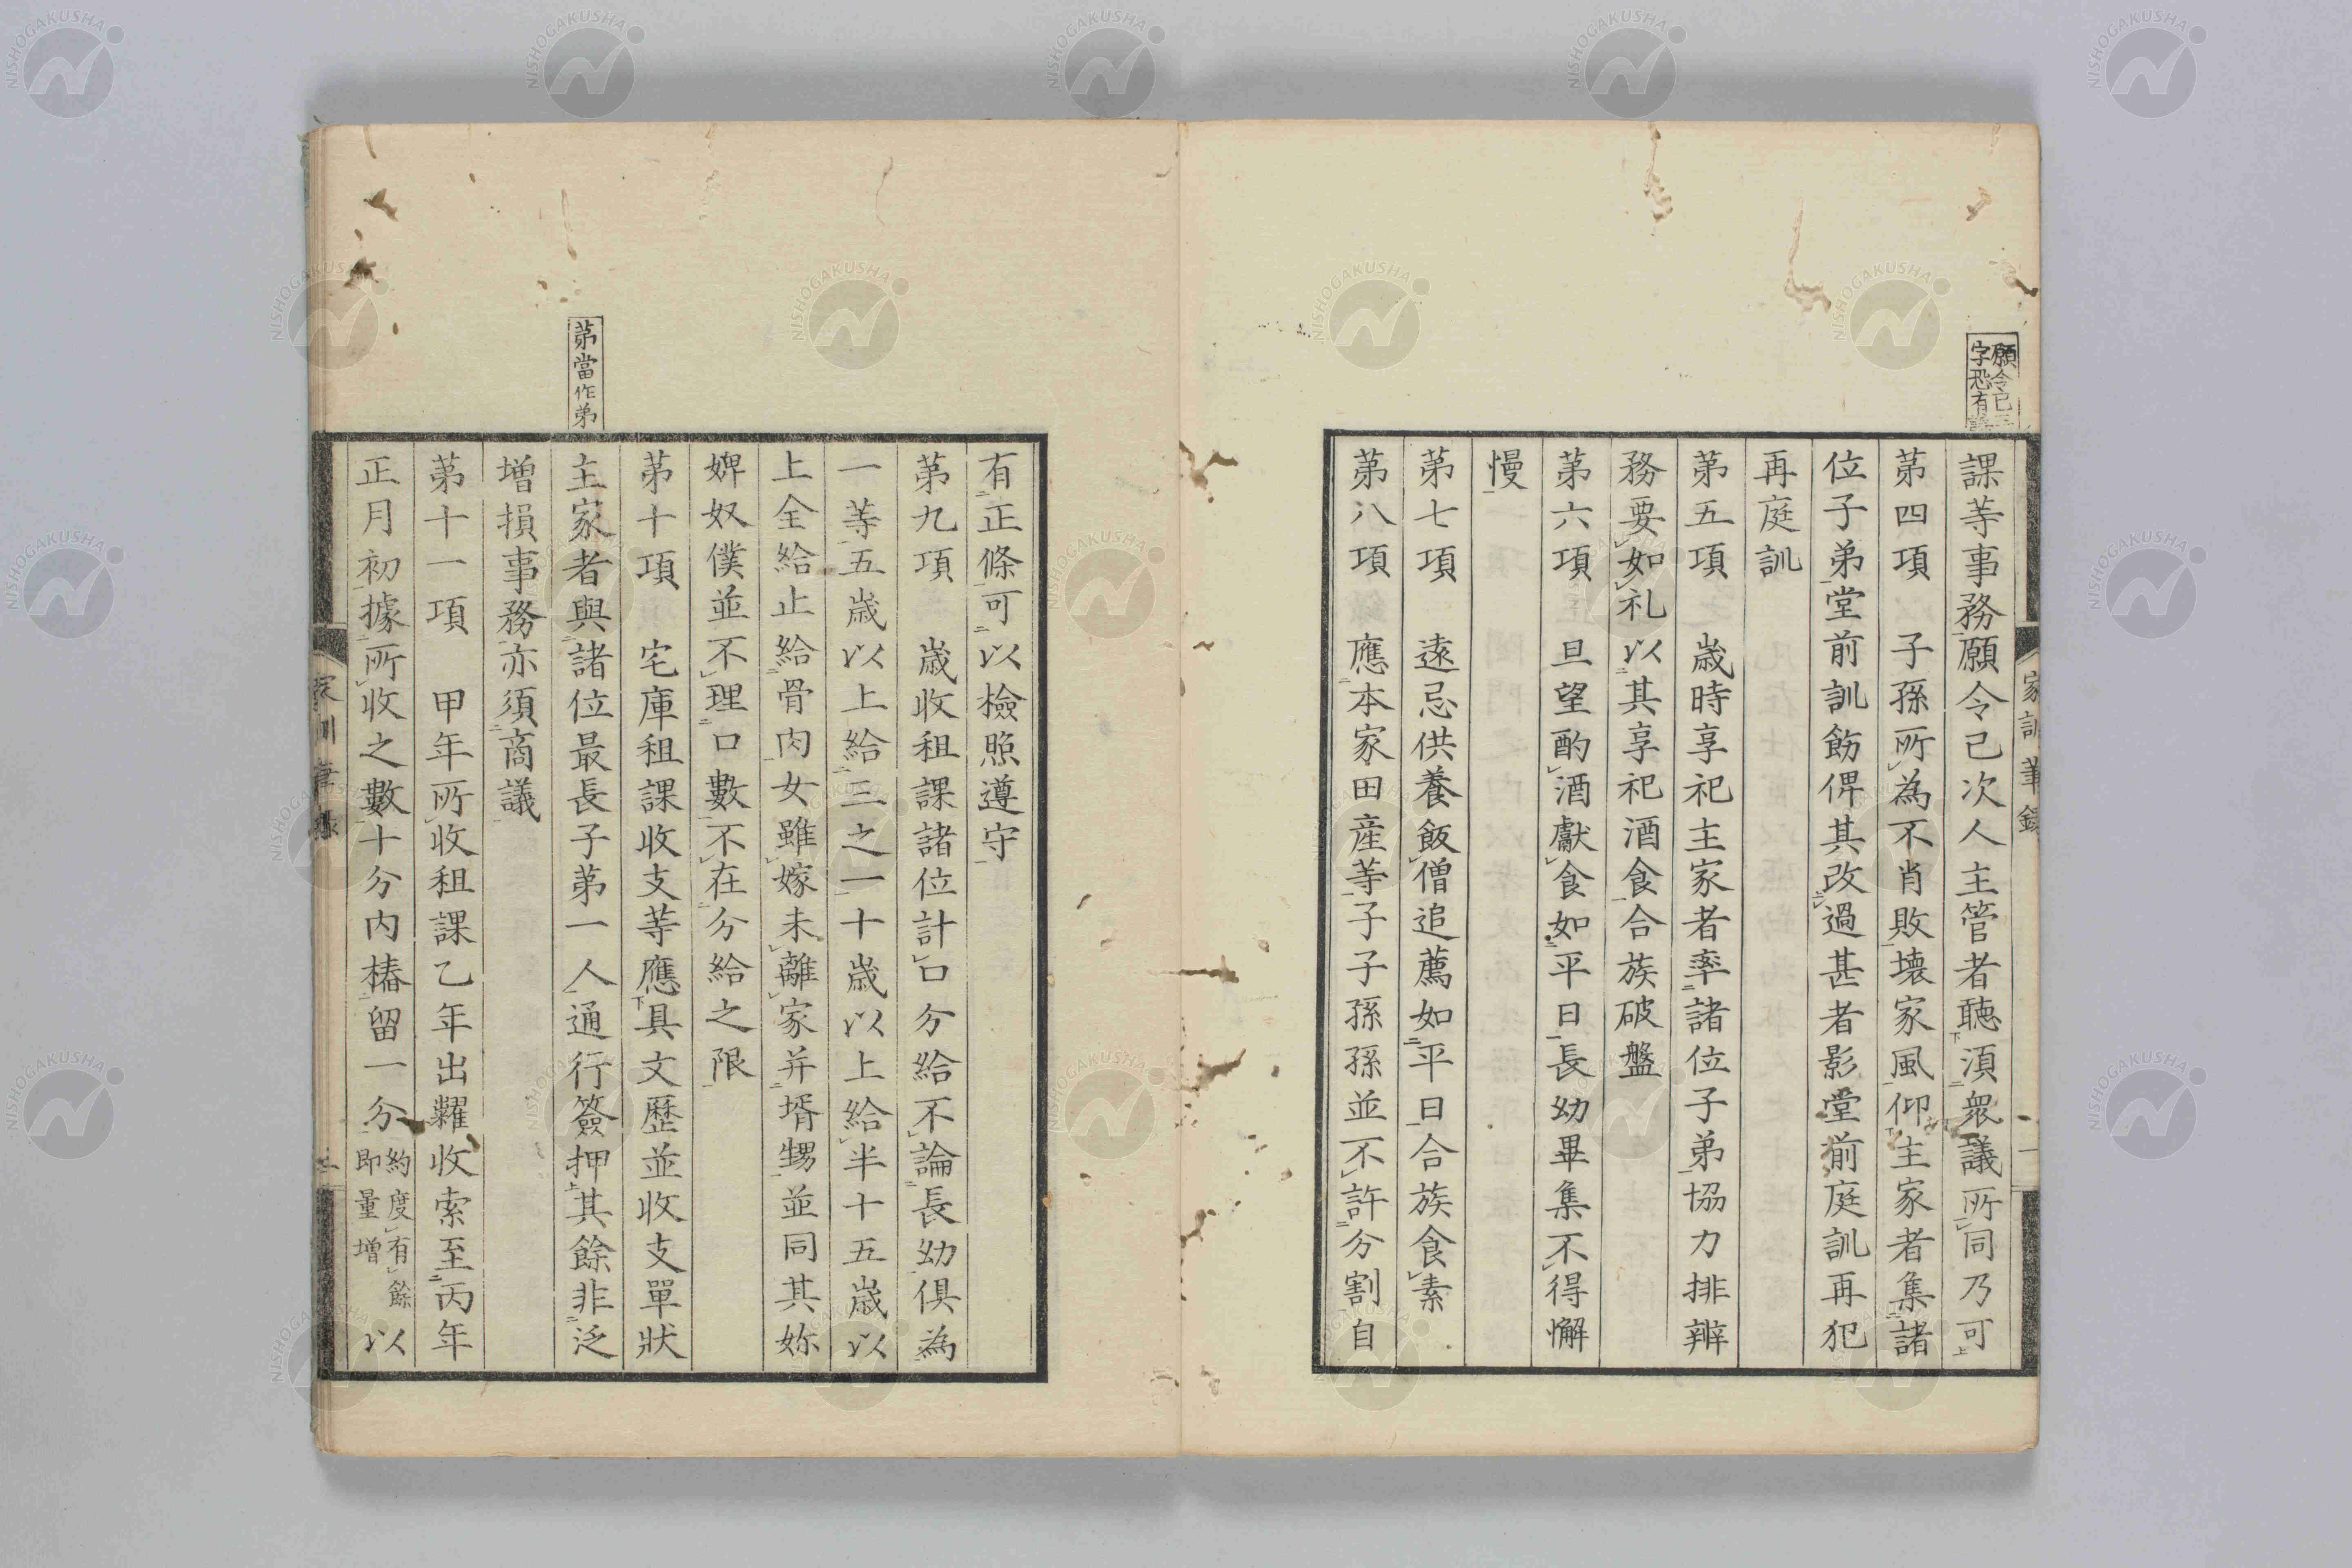 願令已三
字恐有
課等事務願令己次人主管者聽湏衆議所同乃可
第四項　子孫所為不肖敗壊家風仰主家者集諸
位子弟堂前訓飭俾其改過甚者影堂前庭訓再犯
再庭訓
第五項　歳時享祀主家者率諸位子弟協力排辨
務要如礼以其享祀酒食合族破盤
第六項　旦望酌酒獻食如平日長幼畢集不得懈
慢
第七項　遠忌供養飯僧追薦如平日合族食素
第八項　應本家田産等子子孫孫並不許分割自
家訓筆錄
一
有正條可以檢照遵守
第九項　歳收租課諸位計口分給不論長幼俱為
一等五歳以上給三之一十歳以上給半十五歳以
上全給止給骨肉女雖嫁未離家并壻甥並同其妳
婢奴僕並不理口數不在分給之限
第十項　宅庫租課收支等應具文歷並收支單狀
第當作弟
主家者與諸位最長子第一人通行簽押其餘非泛
增損事務亦須商議
第十一項　甲年所收租課乙年出糶收索至丙年
正月初據所收之數十分内樁留一分約度有餘即量增以
家訓筆錄